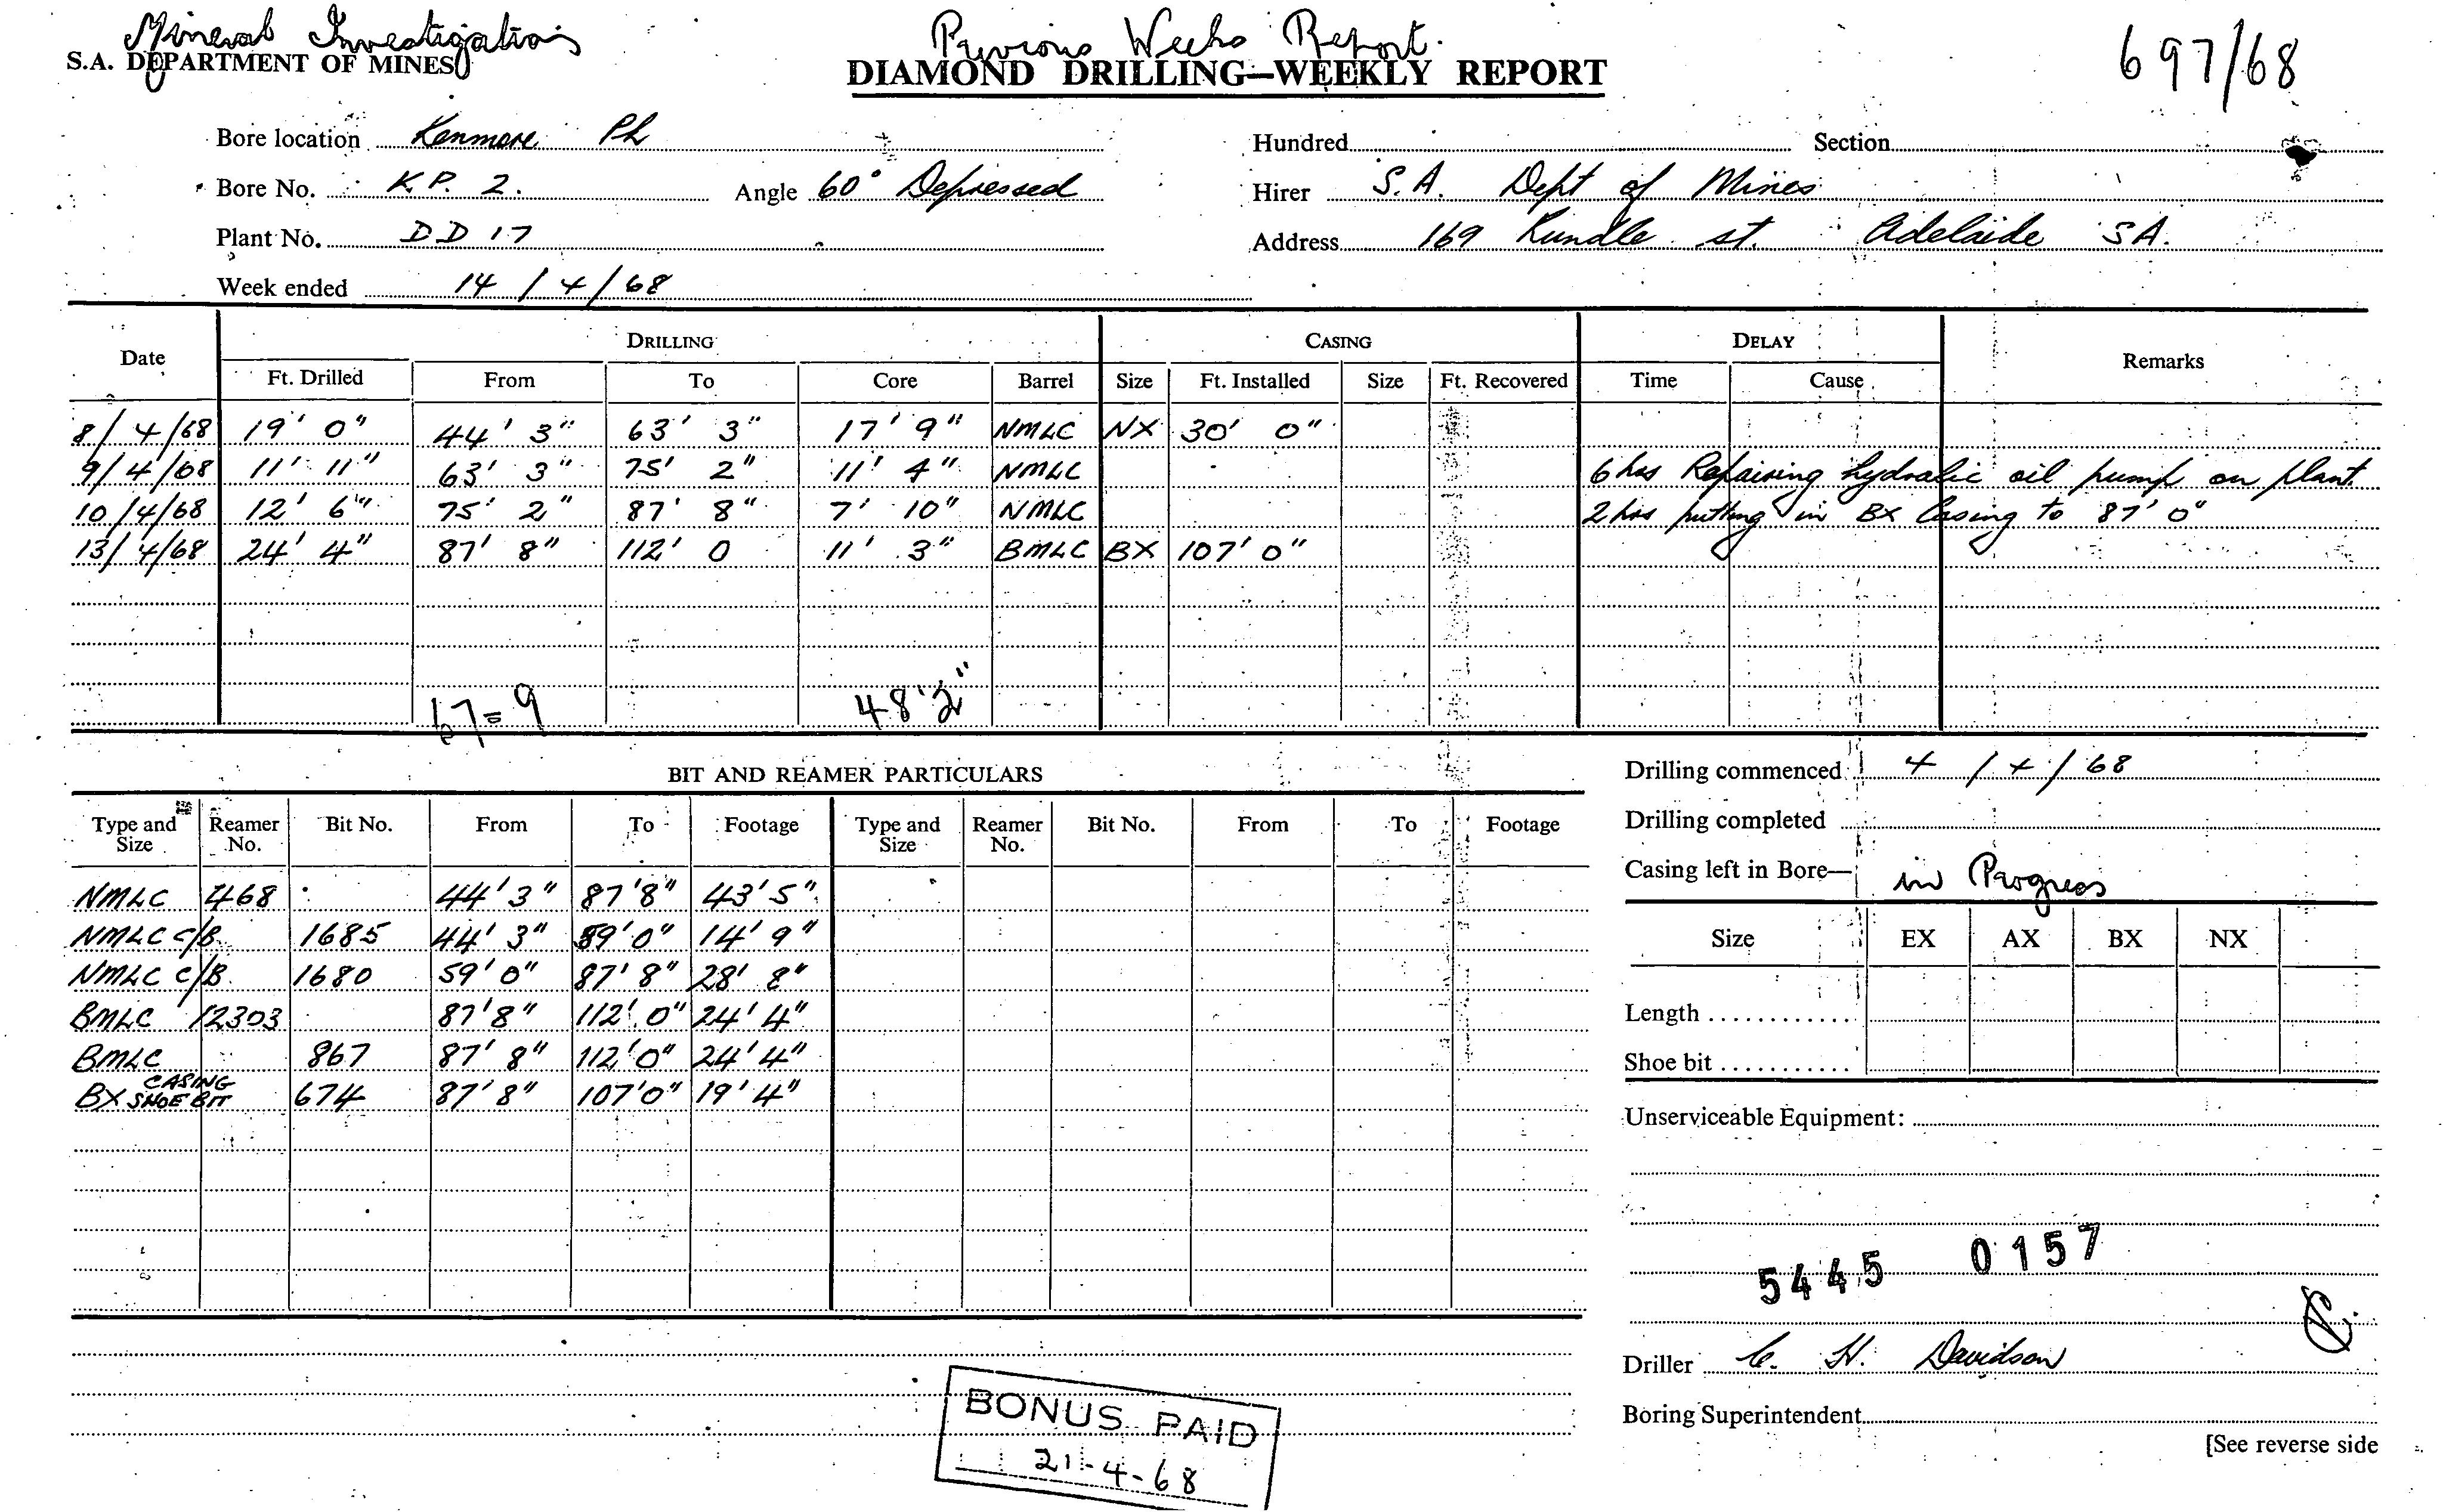 Mineral Investigations
Previous Weeks Report.
697/68
S.A. DEPARTMENT OF MINES
DIAMOND DRILLING—WEEKLY REPORT
Bore location Kenmore Ph
Hundred Section
Bore No. K.P. 2. Angle 60° Depressed
Hirer S.A. Dept of Mines
Plant No. DD 17
Address 169 Rundle st. Adelaide SA.
Week ended 14/4/68
Date DRILLING CASING DELAY Remarks
Ft. Drilled From To Core Barrel Size Ft. Installed Size Ft. Recovered Time Cause
8/4/68 19' 0" 44' 3" 63' 3" 17' 9" NMLC NX 30' 0"
9/4/68 11' 11" 63' 3" 75' 2" 11' 4" NMLC 6 hrs Repairing hydralic oil pump on plant
10/4/68 12' 6" 75' 2" 87' 8" 7' 10" NMLC 2 hrs putting in BX Casing to 87' 0"
13/4/68 24' 4" 87' 8" 112' 0 11' 3" BMLC BX 107' 0"
67=9 48'2"
BIT AND REAMER PARTICULARS
Drilling commenced 4/4/68
Type and Size Reamer No. Bit No. From To Footage Type and Size Reamer No. Bit No. From To Footage
Drilling completed
Casing left in Bore— in Progress
NMLC 7468 44'3" 87'8" 43'5"
NMLC C/B 1685 44' 3" 59'0" 14' 9"
NMLC C/B 1680 59'0" 87'8" 28' 8"
BMLC 12303 87'8" 112'0" 24'4"
BMLC 867 87' 8" 112'0" 24'4"
BX CASING SHOE BIT 674 87'8" 107'0" 19'4"
Size EX AX BX NX
Length ............
Shoe bit ...........
Unserviceable Equipment:
5445 0157
Driller C. H. Davidson
Boring Superintendent
[See reverse side
BONUS PAID
21-4-68